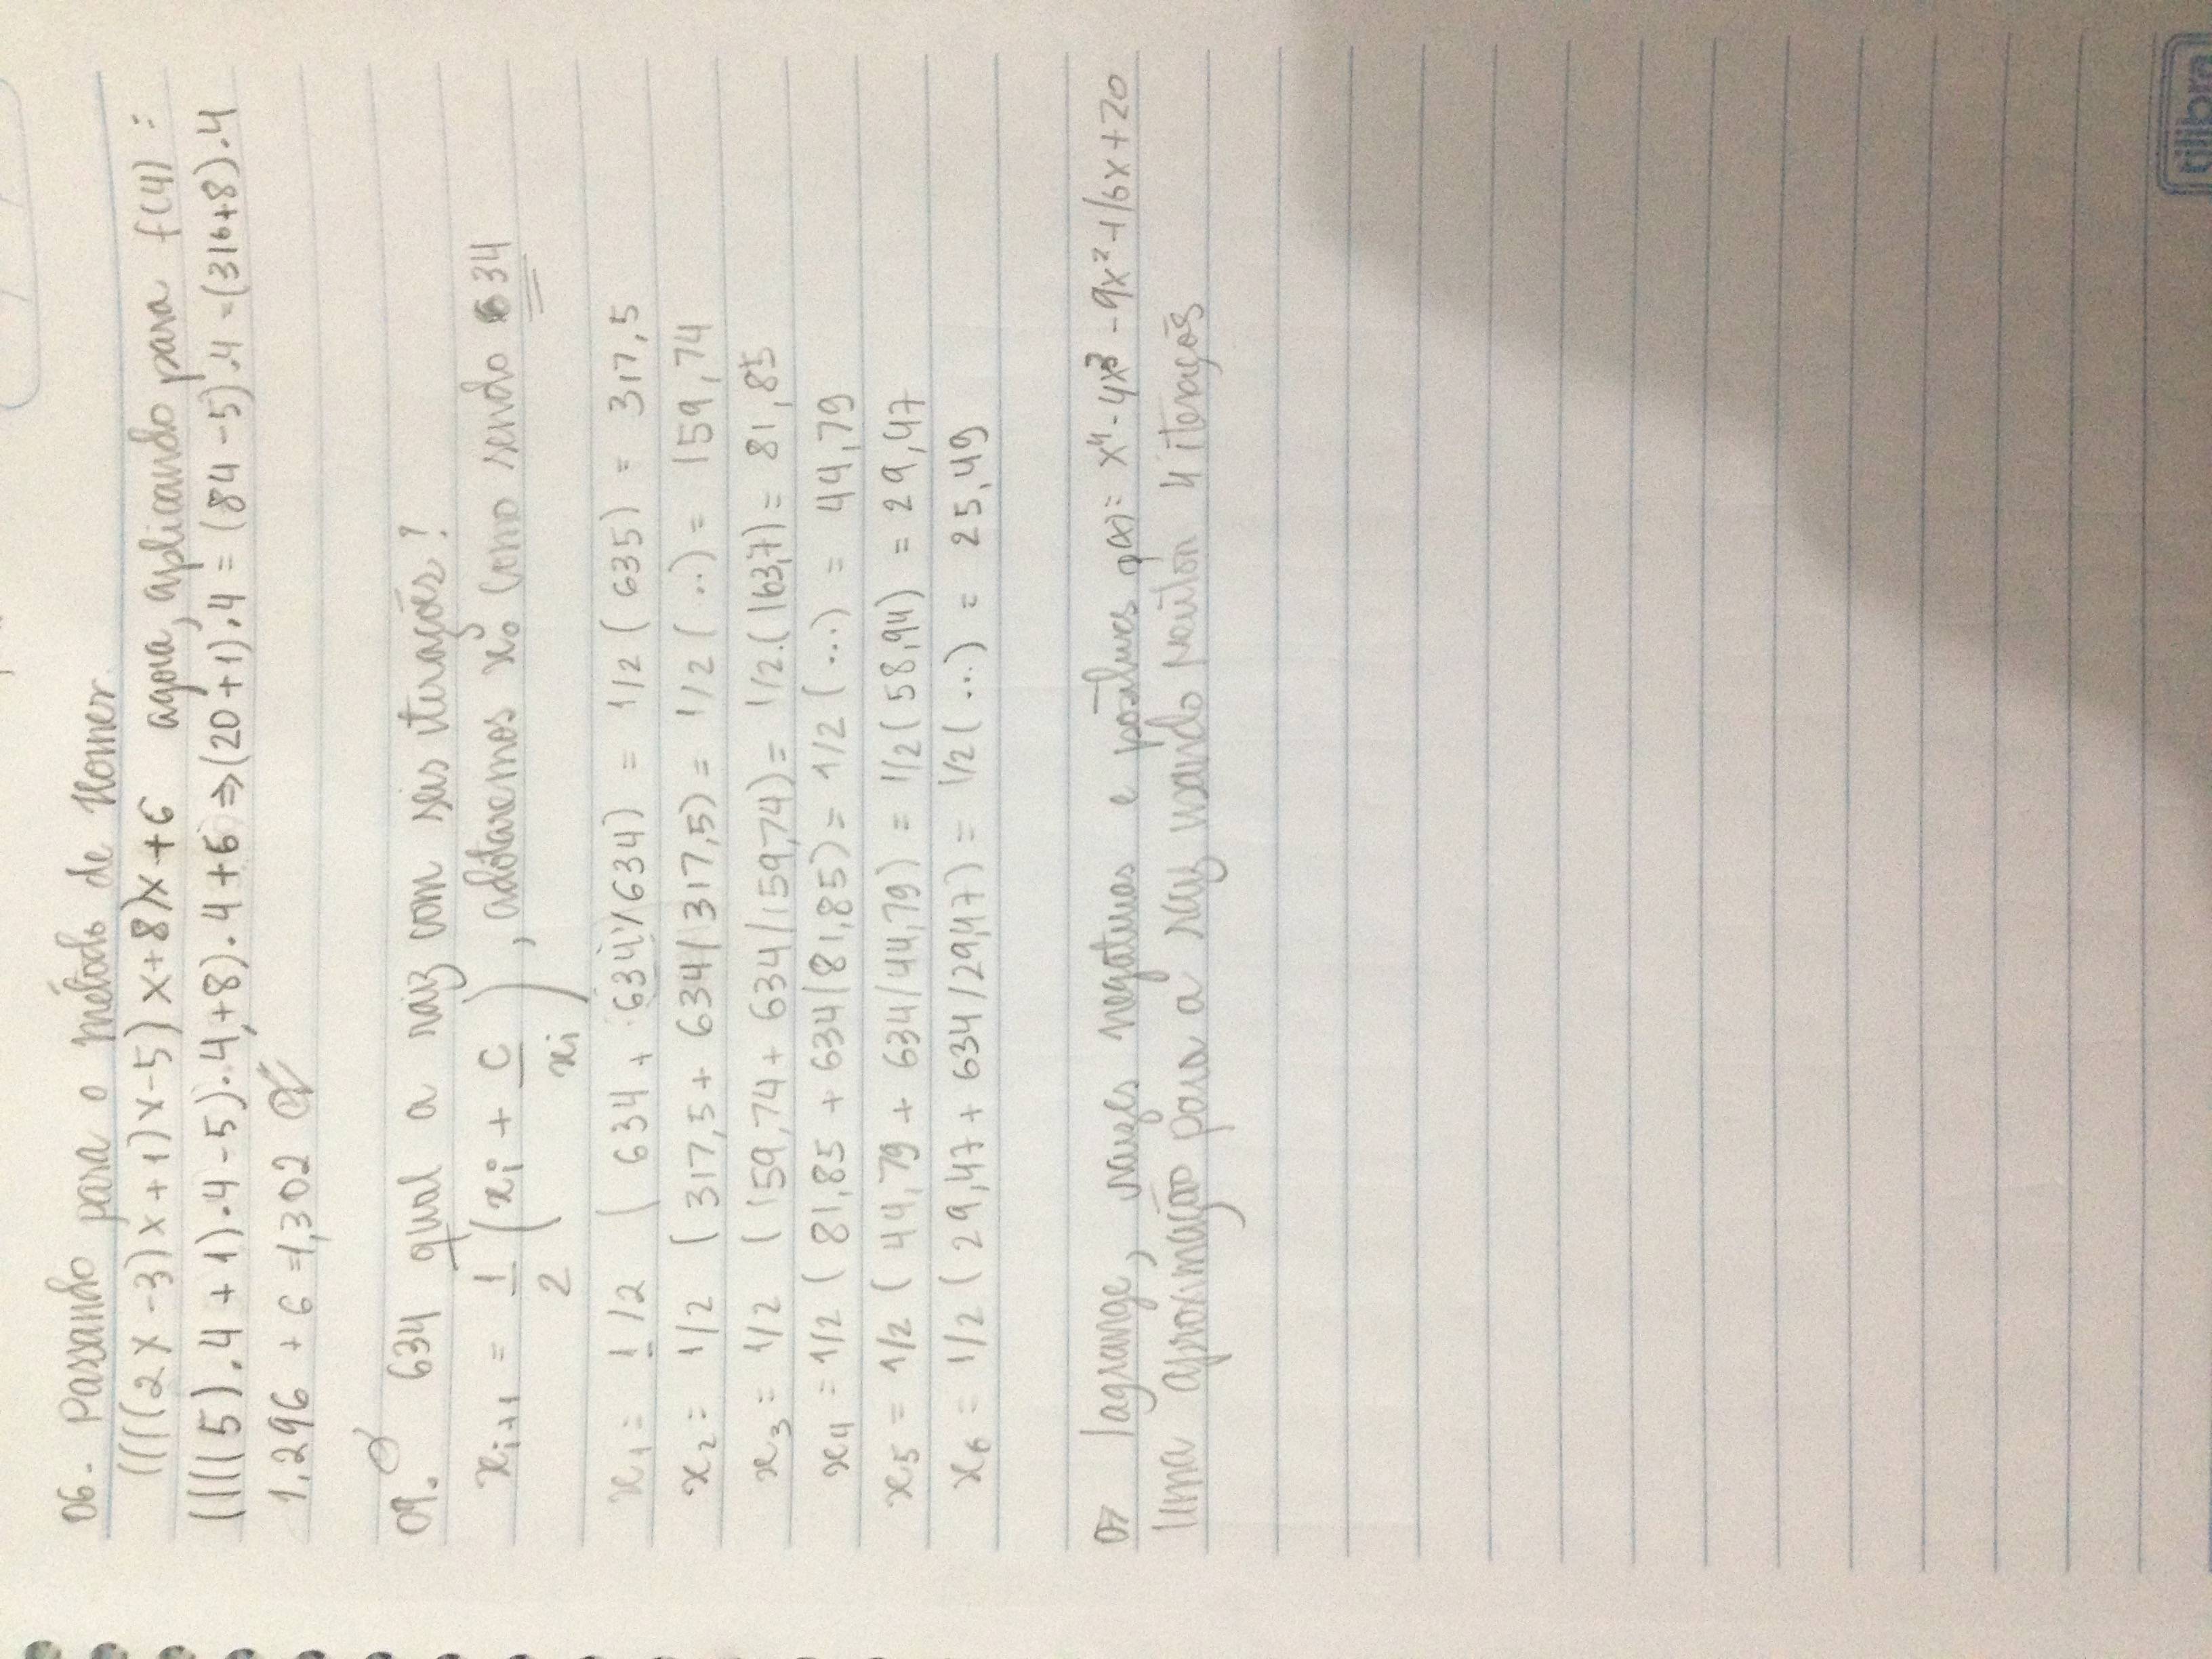 06- Passando para o método de Horner.
((((2x-3)x+1)x-5)x+8)x+6 agora, aplicando para f(4) :
((((5).4+1).4-5).4+8).4+6⇒(20+1).4=(84-5).4=(316+8).4
1.296+6=1,302
09. 634 qual a raiz com seis iterações?
xi+1 = 1/2 (xi + c/xi), adotaremos x0 como sendo 634
x1= 1/2 (634+634/634) = 1/2(635) = 317,5
x2= 1/2 (317,5+634/317,5)= 1/2(..)= 159,74
x3= 1/2 (159,74+634/159,74)= 1/2.(163,7)= 81,85
x4=1/2 (81,85+634/81,85)= 1/2(...) = 44,79
x5= 1/2 (44,79+634/44,79)= 1/2(58,94) = 29,47
x6= 1/2 (29,47+634/29,47)= 1/2(...) = 25,49
07 lagrange, raizes negativas e positivas p(x)= x⁴-4x³-9x²+16x+20
Uma aproximação para a raiz usando newton 4 iterações
tilibra